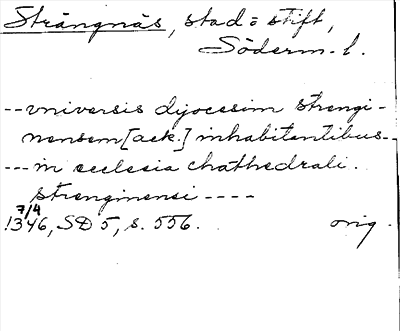 Strängnäs, stad = stift,
Söderm. l.
-- vniversis dyocesim strengi-
nensem [ack.] inhabitantibus --
--- in ecclesia chathedrali
strenginensi ----
7/4
1346, SD 5, s. 556. orig.